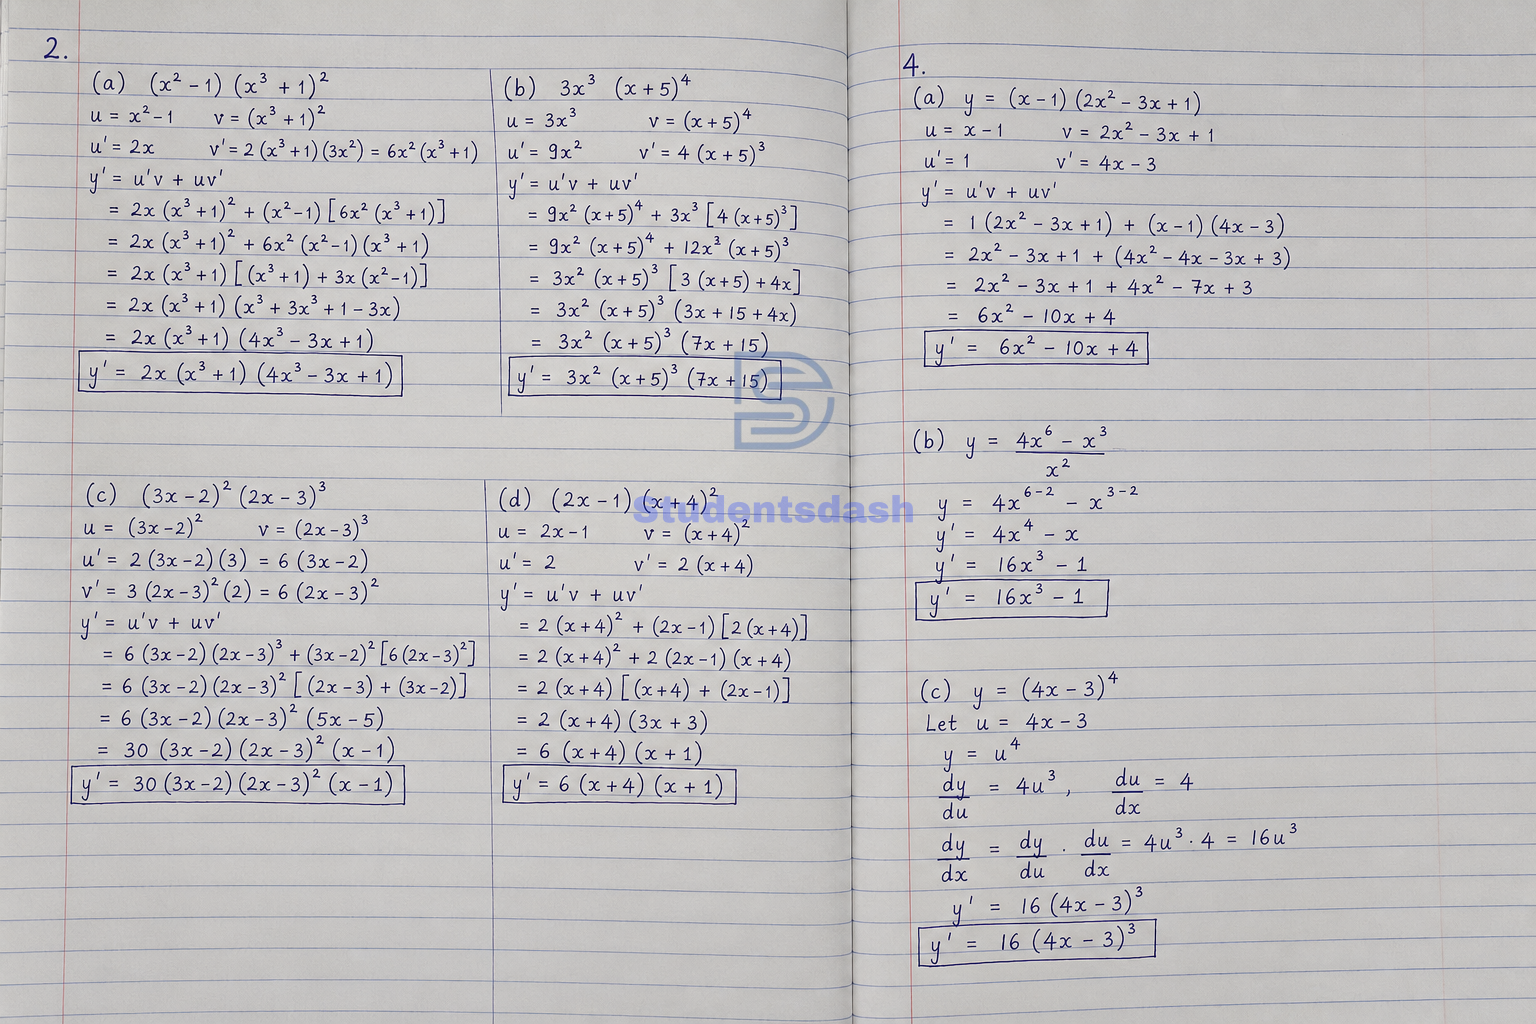 2.
(a) (x² - 1) (x³ + 1)²
u = x² - 1 v = (x³ + 1)²
u' = 2x v' = 2 (x³+1) (3x²) = 6x² (x³+1)
y' = u'v + uv'
= 2x (x³+1)² + (x²-1) [6x² (x³+1)]
= 2x (x³+1)² + 6x² (x²-1) (x³+1)
= 2x (x³+1) [(x³+1) + 3x (x²-1)]
= 2x (x³+1) (x³ + 3x³ + 1 - 3x)
= 2x (x³+1) (4x³ - 3x + 1)
y' = 2x (x³+1) (4x³ - 3x + 1)
(b) 3x³ (x+5)⁴
u = 3x³ v = (x+5)⁴
u' = 9x² v' = 4 (x+5)³
y' = u'v + uv'
= 9x² (x+5)⁴ + 3x³ [4 (x+5)³]
= 9x² (x+5)⁴ + 12x³ (x+5)³
= 3x² (x+5)³ [3 (x+5) + 4x]
= 3x² (x+5)³ (3x + 15 + 4x)
= 3x² (x+5)³ (7x + 15)
y' = 3x² (x+5)³ (7x + 15)
(c) (3x - 2)² (2x - 3)³
u = (3x-2)² v = (2x-3)³
u' = 2 (3x-2) (3) = 6 (3x-2)
v' = 3 (2x-3)² (2) = 6 (2x-3)²
y' = u'v + uv'
= 6 (3x-2) (2x-3)³ + (3x-2)² [6 (2x-3)²]
= 6 (3x-2) (2x-3)² [(2x-3) + (3x-2)]
= 6 (3x-2) (2x-3)² (5x-5)
= 30 (3x-2) (2x-3)² (x-1)
y' = 30 (3x-2) (2x-3)² (x-1)
(d) (2x-1) (x+4)²
u = 2x-1 v = (x+4)²
u' = 2 v' = 2 (x+4)
y' = u'v + uv'
= 2 (x+4)² + (2x-1) [2 (x+4)]
= 2 (x+4)² + 2 (2x-1) (x+4)
= 2 (x+4) [(x+4) + (2x-1)]
= 2 (x+4) (3x + 3)
= 6 (x+4) (x+1)
y' = 6 (x+4) (x+1)
Studentsdash
4.
(a) y = (x-1) (2x² - 3x + 1)
u = x - 1 v = 2x² - 3x + 1
u' = 1 v' = 4x - 3
y' = u'v + uv'
= 1 (2x² - 3x + 1) + (x-1) (4x-3)
= 2x² - 3x + 1 + (4x² - 4x - 3x + 3)
= 2x² - 3x + 1 + 4x² - 7x + 3
= 6x² - 10x + 4
y' = 6x² - 10x + 4
(b) y = 4x⁶ - x³
x²
y = 4x⁶⁻² - x³⁻²
y' = 4x⁴ - x
y' = 16x³ - 1
y' = 16x³ - 1
(c) y = (4x - 3)⁴
Let u = 4x - 3
y = u⁴
dy/du = 4u³, du/dx = 4
dy/dx = dy/du . du/dx = 4u³ · 4 = 16u³
y' = 16 (4x - 3)³
y' = 16 (4x - 3)³